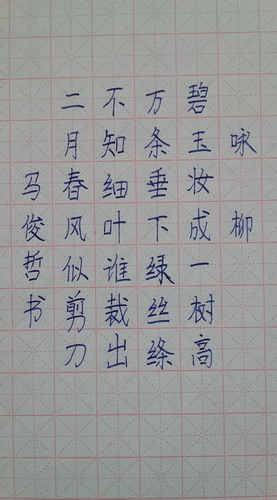 咏柳
碧玉妆成一树高
万条垂下绿丝绦
不知细叶谁裁出
二月春风似剪刀
马俊哲书